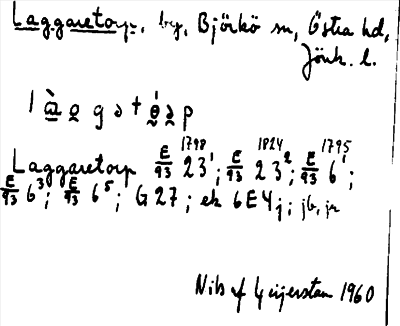 Laggaretorp, by, Björkö sn, Östra hd,
Jönk. l.
Laggaretorp E/93 23¹ 1798; E/93 23² 1824; E/93 6¹ 1795;
E/93 6³; E/93 6⁵; G 27; ek 6E4j; jb, jr
Nils af Geijerstam 1960